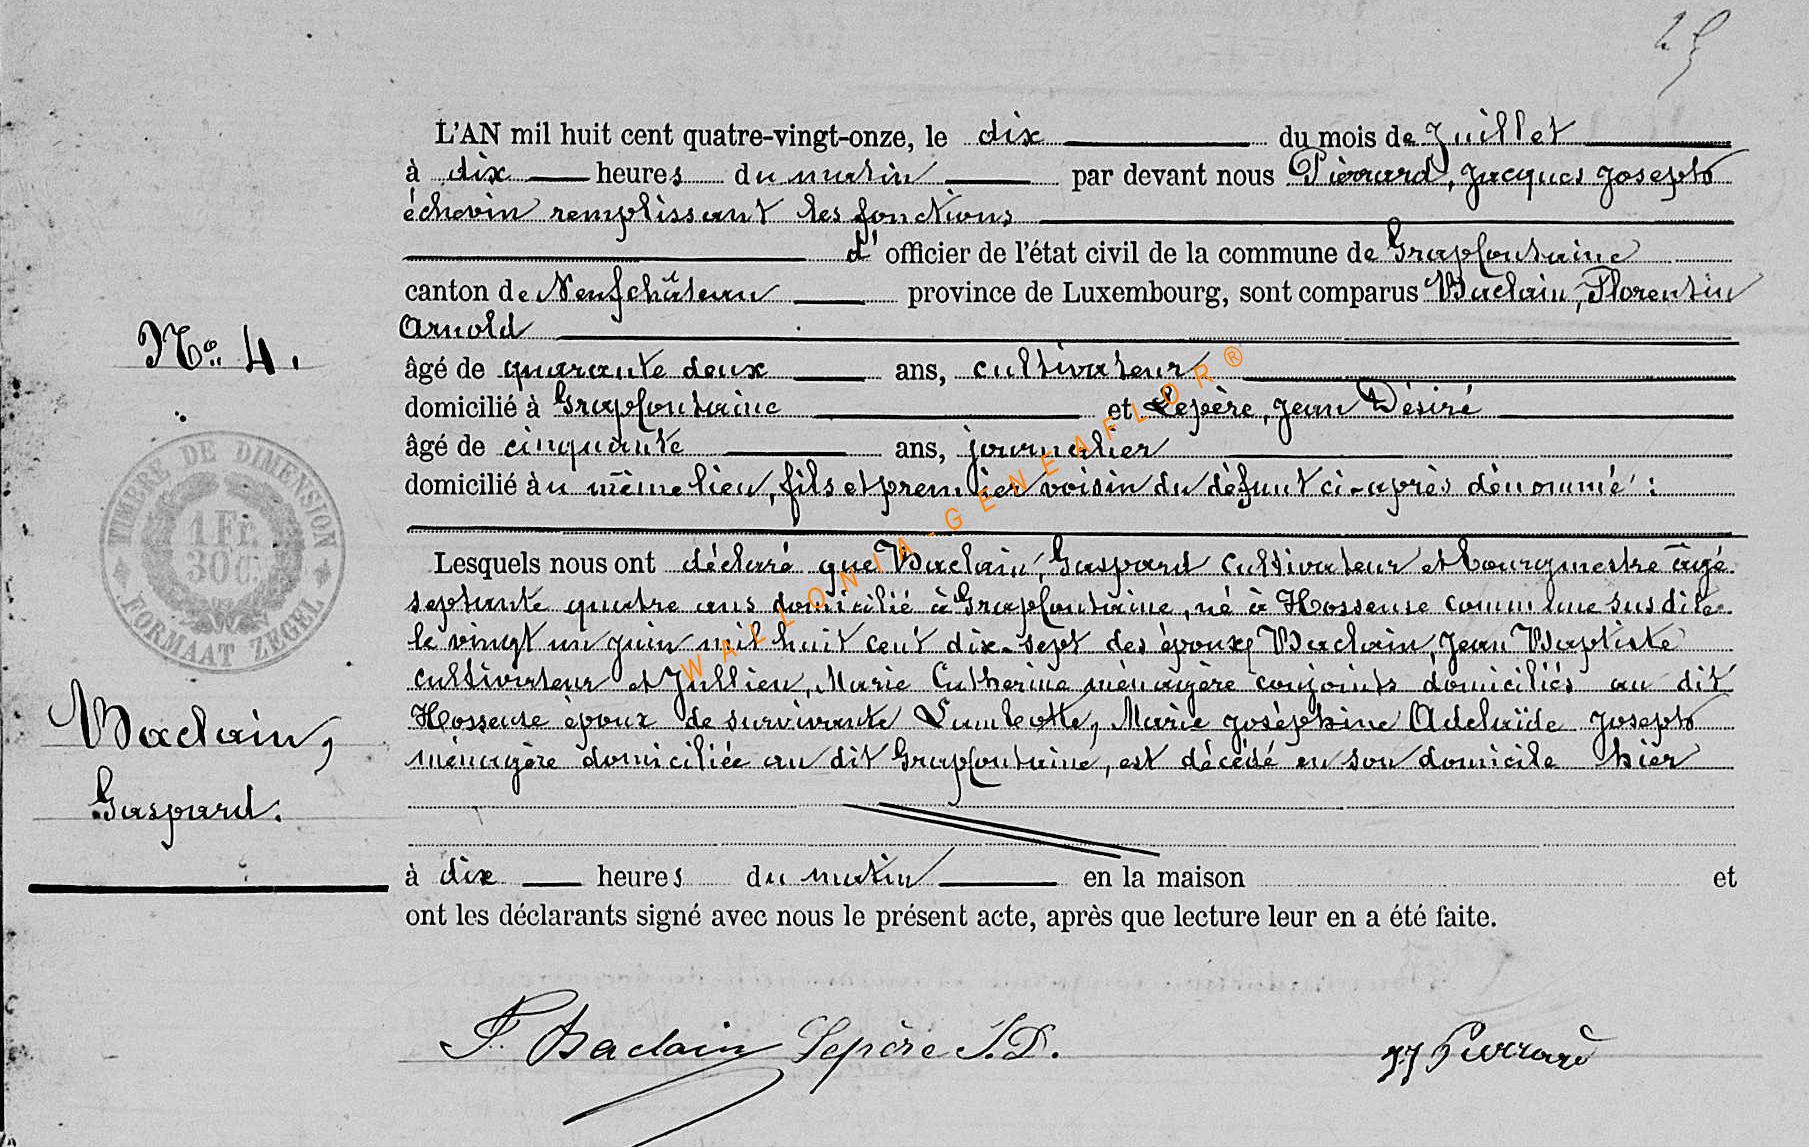 25
L'AN mil huit cent quatre-vingt-onze, le dix du mois de Juillet
à dix heures du matin par devant nous Pierrard, Jacques Joseph
échevin remplissant les fonctions
d' officier de l'état civil de la commune de Grapfontaine
canton de Neufchâteau province de Luxembourg, sont comparus Baclain, Florentin
Arnold
âgé de quarante deux ans, cultivateur
domicilié à Grapfontaine et Lepère, Jean Désiré
âgé de cinquante ans, journalier
domicilié au même lieu, fils et premier voisin du défunt ci-après dénommé :
Lesquels nous ont déclaré que Baclain, Gaspard cultivateur et bourgmestre âgé
septante quatre ans domicilié à Grapfontaine, né à Hosseuse commune susdite
le vingt un juin mil huit cent dix-sept des époux Baclain, Jean Baptiste
cultivateur et Jullien, Marie Catherine ménagère conjoints domiciliés au dit
Hosseuse époux de survivante Lambotte, Marie Joséphine Adelaïde Joseph
ménagère domiciliée au dit Grapfontaine, est décédé en son domicile hier
à dix heures du matin en la maison et
ont les déclarants signé avec nous le présent acte, après que lecture leur en a été faite.
F. Baclain Lepère J.D. JJ Pierrard
No. 4.
TIMBRE DE DIMENSION
1 Fr.
30 C.
FORMAAT ZEGEL
Baclain,
Gaspard.
WALLONIA-GENEAFLOR®